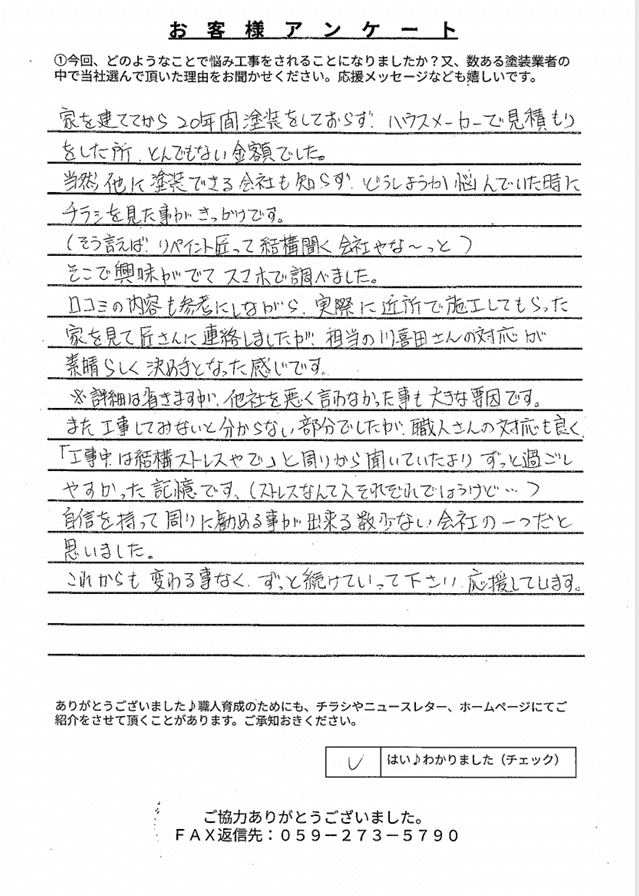 お客様アンケート
①今回、どのようなことで悩み工事をされることになりましたか？又、数ある塗装業者の
中で当社選んで頂いた理由をお聞かせください。応援メッセージなども嬉しいです。
家を建ててから20年間塗装をしておらず、ハウスメーカーで見積もり
をした所、とんでもない金額でした。
当然、他に塗装できる会社も知らず、どうしようか悩んでいた時に
チラシを見た事がきっかけです。
(そう言えば、リペイント匠って結構聞く会社やな～っと)
そこで興味がでてスマホで調べました。
口コミの内容も参考にしながら、実際に近所で施工してもらった
家を見て匠さんに連絡しましたが、担当の川喜田さんの対応が
素晴らしく決めきとなった感じです。
※詳細は省きますが、他社を悪く言わなかった事も大きな要因です。
また工事してみないと分からない部分でしたが、職人さんの対応も良く
「工事中は結構ストレスやで」と周りから聞いていたより ずっと過ごし
やすかった記憶です。(ストレスなんて人それぞれでしょうけど…)
自信を持って周りに勧める事が出来る数少ない会社の一つだと
思いました。
これからも変わる事なく、ずっと続けていって下さい、応援してします。
ありがとうございました♪職人育成のためにも、チラシやニュースレター、ホームページにてご
紹介をさせて頂くことがあります。ご承知おきください。
はい♪わかりました（チェック）
ご協力ありがとうございました。
ＦＡＸ返信先：０５９－２７３－５７９０